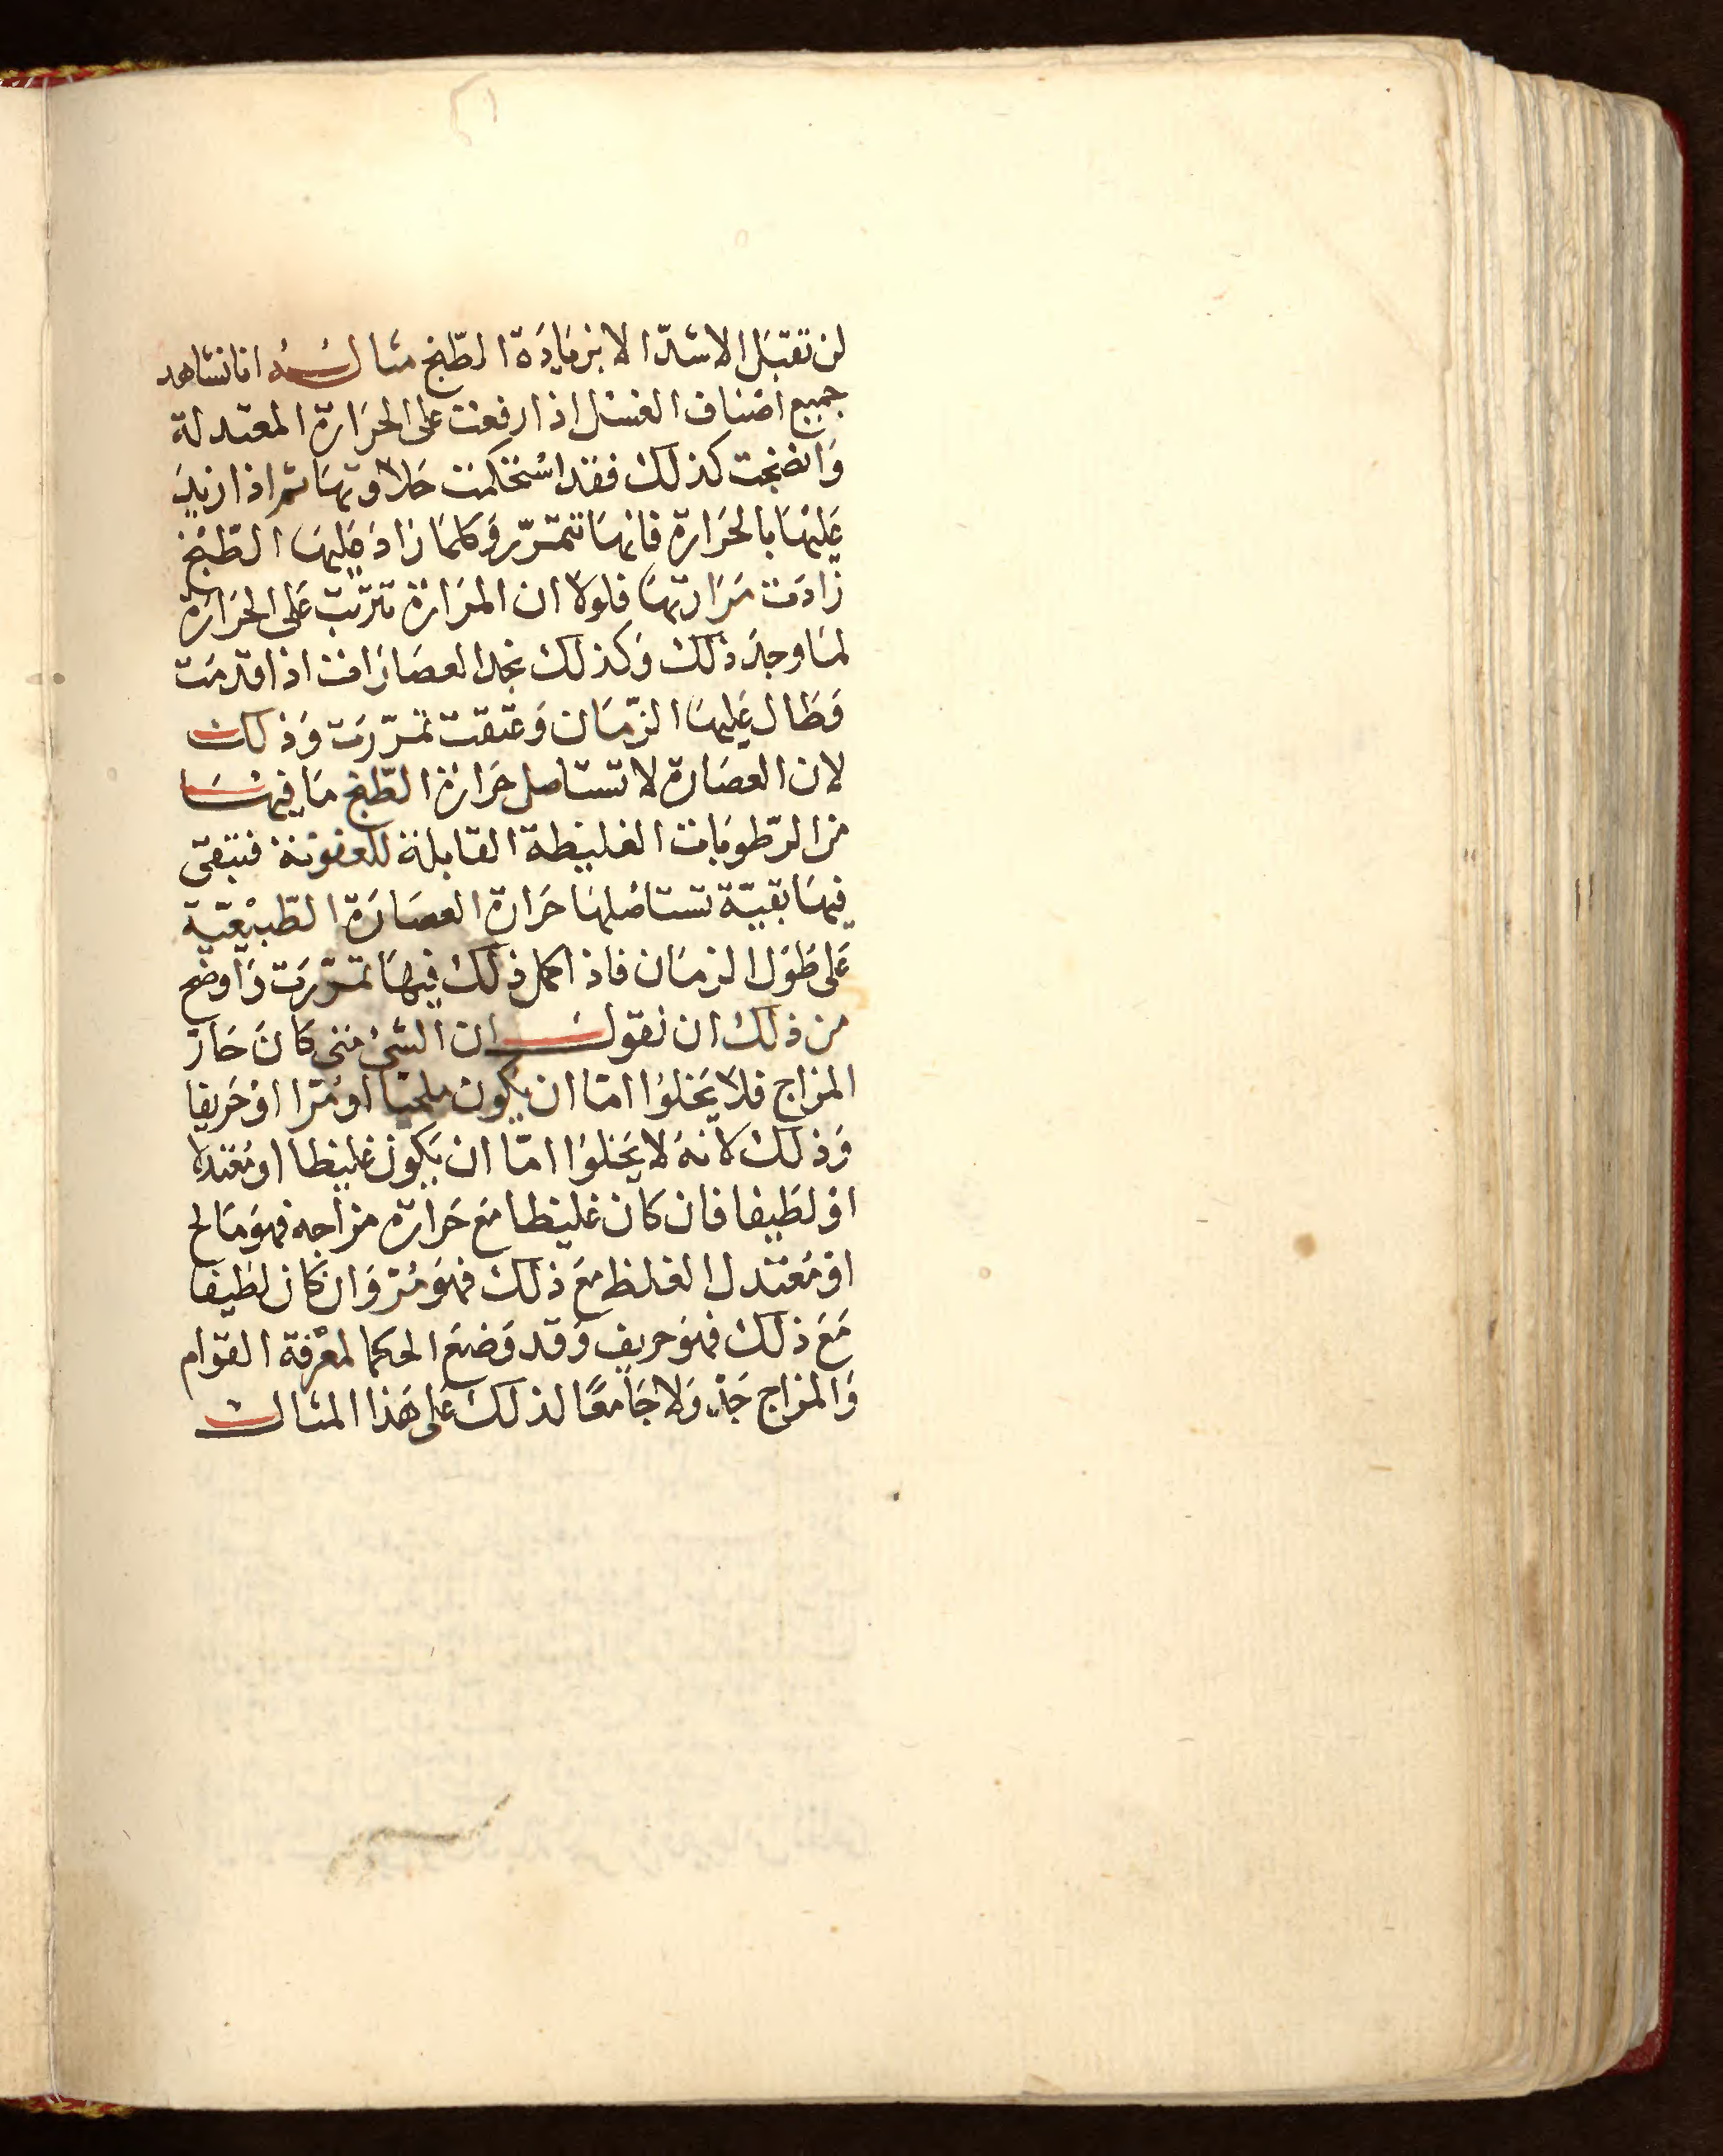 لن تقبل الاشدّ الا بزيَادَة الطّبخ مثالـــه انا نشاهد
جميع اصناف العسل اذا رفعت على الحرَارة المعتدلة
وَانضجت كذلك فقد استحكمت حَلاوتهَا ثم اذا ازيدَ
عَليْهَا بالحرَارة فانهَا تتمرّر وَكلمَا زادَ عَليهَا الطّبْخ
زادَت مَرَارتهَا فلولا ان المرَارة تترتّب عَلى الحرَارَة
لمَا وجدَ ذلك وَكذلك نجد العصَارَات اذا قدمَت
وَطَال عَليهَا الزّمَان وَعتقت تمرّرَت وَذلك
لان العصَارة لا تستاصل حَرَارة الطّبخ مَا فيهَا
من الرّطوبَات الغليظة القابلة للعفونة فتبقى
فيهَا بقيّة تستاصلهَا حَرَارة العصَارَة الطّبيْعيّة
عَلى طوْل الزمَان فاذا كمل ذلك فيهَا تمرّرَت وَاوضح
من ذلك ان نقول ان الشئ متى كَانَ حَارّ
المزاج فلا يَخلوُا امّا ان يكون ملحيًا اوْ مُرّا اوْ حَريفا
وَذلك لانهُ لا يَخلوُا امّا ان يَكون غليظا او مُعتدلا
اوْ لطَيفا فان كَان غليظا مَع حَرَارة مزاجه فهوَ مَالح
اوْ مُعتدل الغلظ مَع ذلك فهوَ مُرّ وَان كَان لطَيفا
مَعَ ذلك فهوَ حريف وَقد وَضعَ الحكما لمعْرفة القوَام
وَالمزاج جَدْولا جَامعًا لذلك عَلى هَذا المثال